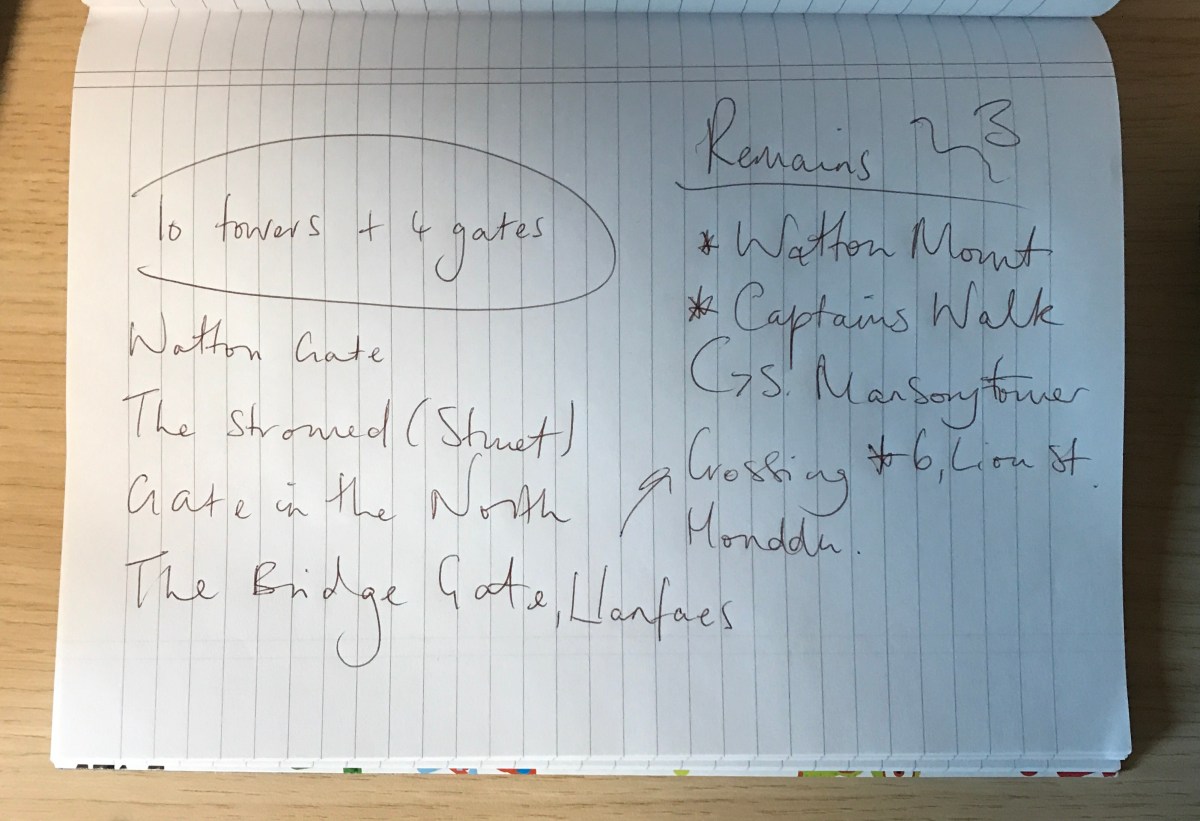 10 towers + 4 gates
Watton Gate
The Stromed (Struet)
Gate in the North
The Bridge Gate, Llanfaes
Remains 3
* Watton Mount
* Captains Walk
Mansory tower
Crossing * 6, Lion St.
Honddu.